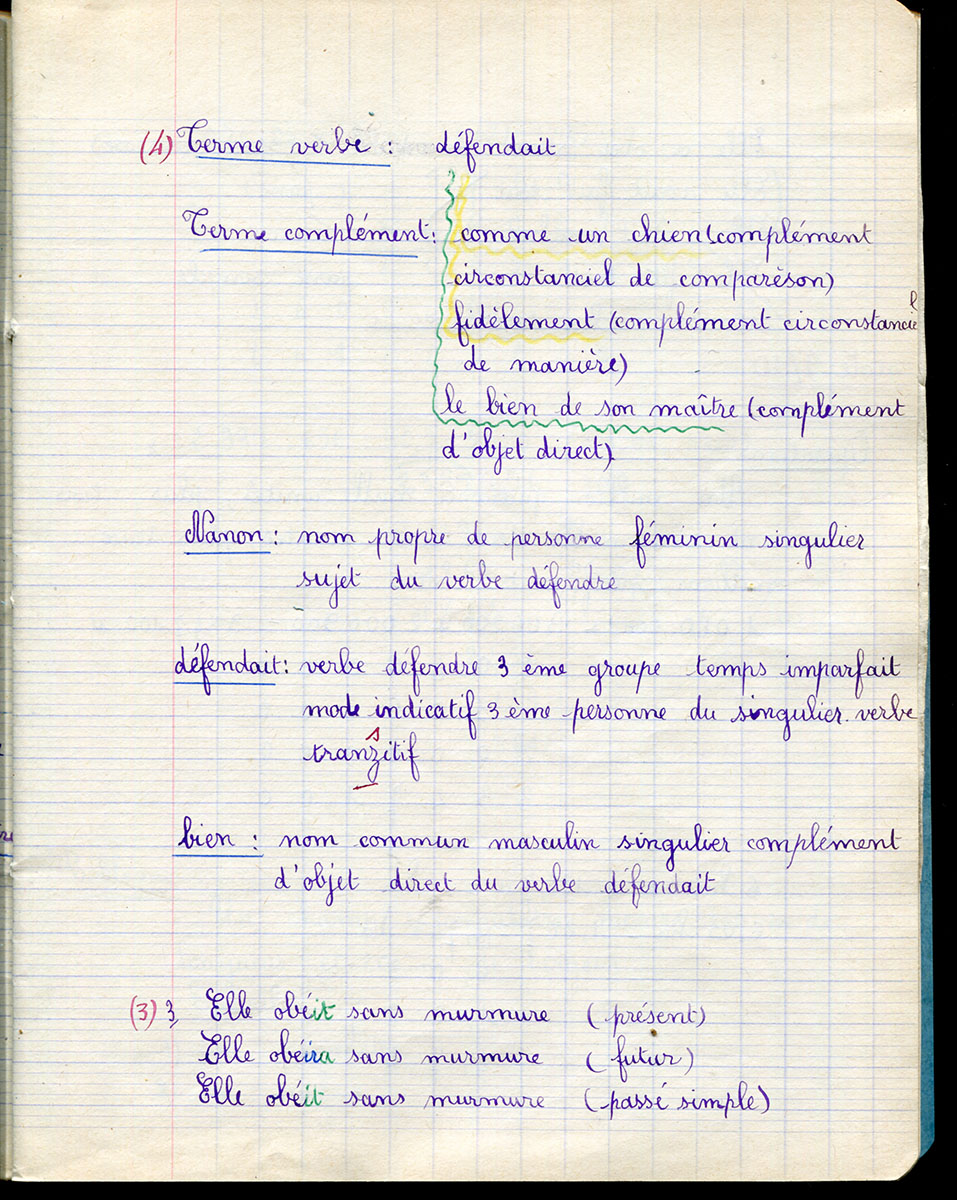 (4) Terme verbe : défendait
Terme complément : comme un chien (complément
circonstanciel de comparèson)
fidèlement (complément circonstanciel
de manière)
le bien de son maître (complément
d'objet direct)
Nanon : nom propre de personne féminin singulier
sujet du verbe défendre
défendait : verbe défendre 3 ème groupe temps imparfait
mode indicatif 3 ème personne du singulier. verbe
s
tranzitif
bien : nom commun masculin singulier complément
d'objet direct du verbe défendait
(3) 3, Elle obéit sans murmure (présent)
Elle obéira sans murmure (futur)
Elle obéit sans murmure (passé simple)